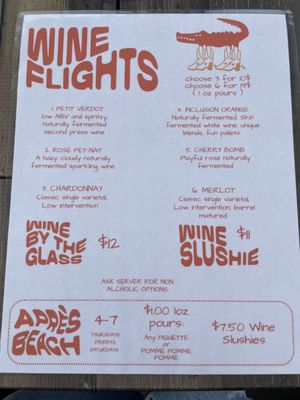 WINE
FLIGHTS
choose 3 for 10¢
choose 6 for 19¢
( 1 oz pours )
1. PETIT VERDOT
low ABV and spritzy,
naturally fermented
second press wine
2. ROSE PET-NAT
A hazy cloudy naturally
fermented sparkling wine
3. CHARDONNAY
Classic single varietal,
Low intervention
4. INCLUSION ORANGE
Naturally fermented, Skin
fermented white wine, unique
blends, fun pallets
5. CHERRY BOMB
Playful rose naturally
fermented
6. MERLOT
Classic single varietal,
Low intervention, barrel
matured
WINE
BY THE
GLASS
$12
WINE
SLUSHIE
$11
ASK SERVER FOR NON
ALCHOLIC OPTIONS
APRÈS
BEACH
4-7
THURSDAYS
FRIDAYS
SATURDAYS
$1.00 1oz
pours:
Any PIQUETTE
or
POMME POMME
POMME
$7.50 Wine
Slushies